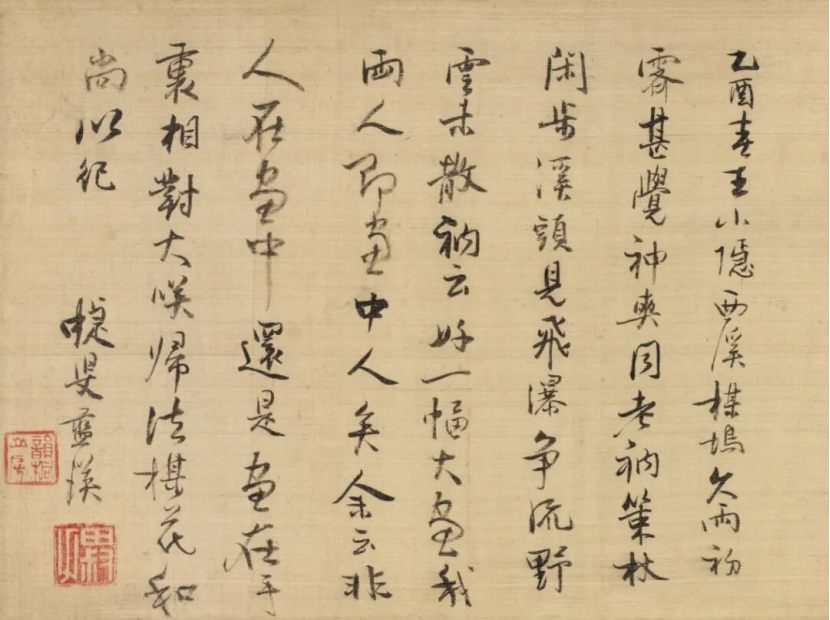 乙酉春王小隱西溪楳塢久雨初
霽甚覺神爽同老衲策杖
閑步溪頭見飛瀑爭流野
雲未散衲云好一幅大畫我
兩人即畫中人矣余云非
人在畫中還是畫在手
裏相對大咲歸法楳花和
尚以紀
蜨叟藍瑛